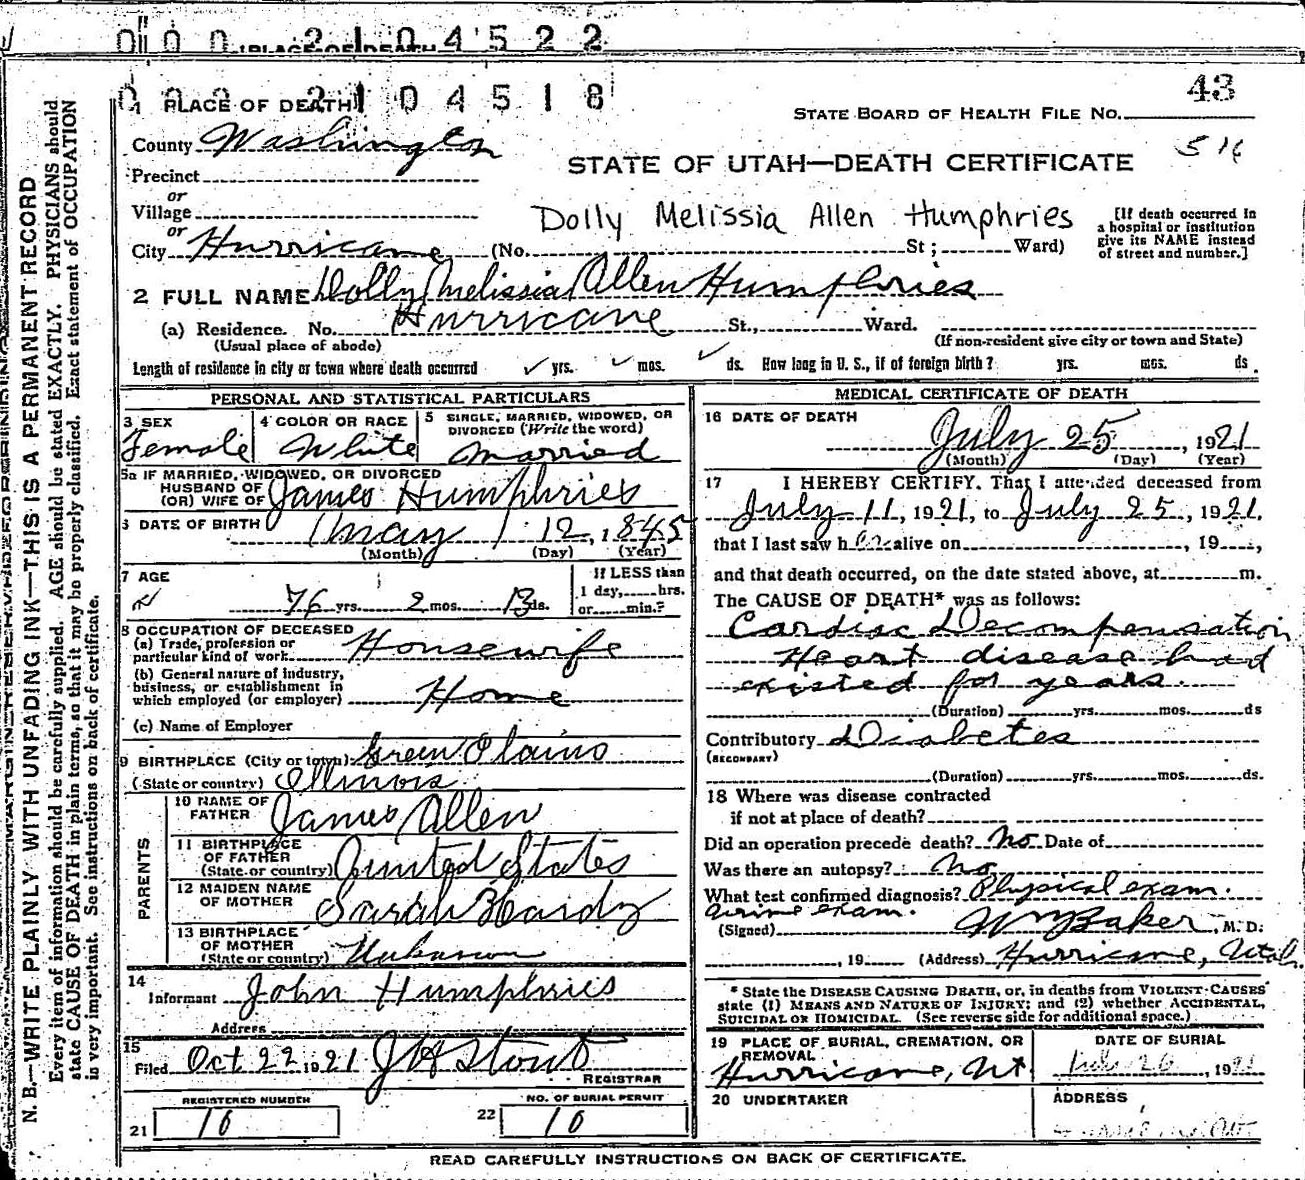 0 0 0 2 1 0 4 5 2 2
0 0 0 2 1 0 4 5 1 8
43
1 PLACE OF DEATH
STATE BOARD OF HEALTH FILE NO.
County Washington
516
STATE OF UTAH—DEATH CERTIFICATE
Precinct
or
Village
Dolly Melissia Allen Humphries
[If death occurred in
a hospital or institution
give its NAME instead
of street and number.]
or
City Hurricane (No. St; Ward)
2 FULL NAME Dolly Melissia Allen Humphries
(a) Residence. No. Hurricane St., Ward.
(Usual place of abode) (If non-resident give city or town and State)
Length of residence in city or town where death occurred ✓ yrs. ✓ mos. ✓ ds. How long in U. S., if of foreign birth? yrs. mos. ds.
PERSONAL AND STATISTICAL PARTICULARS
3 SEX
Female
4 COLOR OR RACE
White
5 SINGLE, MARRIED, WIDOWED, OR
DIVORCED (Write the word)
Married
5a IF MARRIED, WIDOWED, OR DIVORCED
HUSBAND OF
(OR) WIFE OF James Humphries
6 DATE OF BIRTH May 12, 1845
(Month) (Day) (Year)
7 AGE
76 yrs. 2 mos. 13 ds.
If LESS than
1 day, hrs.
or min.?
8 OCCUPATION OF DECEASED
(a) Trade, profession or
particular kind of work Housewife
(b) General nature of industry,
business, or establishment in
which employed (or employer) Home
(c) Name of Employer
9 BIRTHPLACE (City or town) Green Plains
(State or country) Illinois
PARENTS
10 NAME OF
FATHER James Allen
11 BIRTHPLACE
OF FATHER
(State or country) United States
12 MAIDEN NAME
OF MOTHER Sarah Hardy
13 BIRTHPLACE
OF MOTHER
(State or country)
14
Informant John Humphries
Address
15
Filed Oct 22 1921 J H Stout
REGISTRAR
REGISTERED NUMBER
21 10
NO. OF BURIAL PERMIT
22 10
MEDICAL CERTIFICATE OF DEATH
16 DATE OF DEATH
July 25, 1921
(Month) (Day) (Year)
17 I HEREBY CERTIFY, That I attended deceased from
July 11, 1921, to July 25, 1921,
that I last saw her alive on , 19 ,
and that death occurred, on the date stated above, at m.
The CAUSE OF DEATH* was as follows:
Cardiac Decompensation
Heart disease had
existed for years.
(Duration) yrs. mos. ds
Contributory Diabetes
(SECONDARY)
(Duration) yrs. mos. ds.
18 Where was disease contracted
if not at place of death?
Did an operation precede death? No Date of
Was there an autopsy? No
What test confirmed diagnosis? Physical exam.
urine exam.
(Signed) Baker, M. D.
, 19 (Address) Hurricane, Utah
* State the DISEASE CAUSING DEATH, or, in deaths from VIOLENT CAUSES
state (1) MEANS AND NATURE OF INJURY; and (2) whether ACCIDENTAL,
SUICIDAL OR HOMICIDAL. (See reverse side for additional space.)
19 PLACE OF BURIAL, CREMATION, OR
REMOVAL
Hurricane, Ut
DATE OF BURIAL
July 26, 1921
20 UNDERTAKER
ADDRESS
READ CAREFULLY INSTRUCTIONS ON BACK OF CERTIFICATE.
N. B.—WRITE PLAINLY WITH UNFADING INK—THIS IS A PERMANENT RECORD
Every item of information should be carefully supplied. AGE should be stated EXACTLY. PHYSICIANS should
state CAUSE OF DEATH in plain terms, so that it may be properly classified. Exact statement of OCCUPATION
is very important. See instructions on back of certificate.